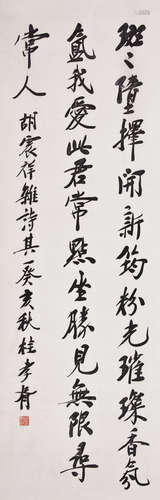 斑々墮擇開新筠粉光璀璨香氛
氳我愛此君常默坐勝見無限尋
常人 胡宸祥雜詩其一癸亥秋桂孝膺